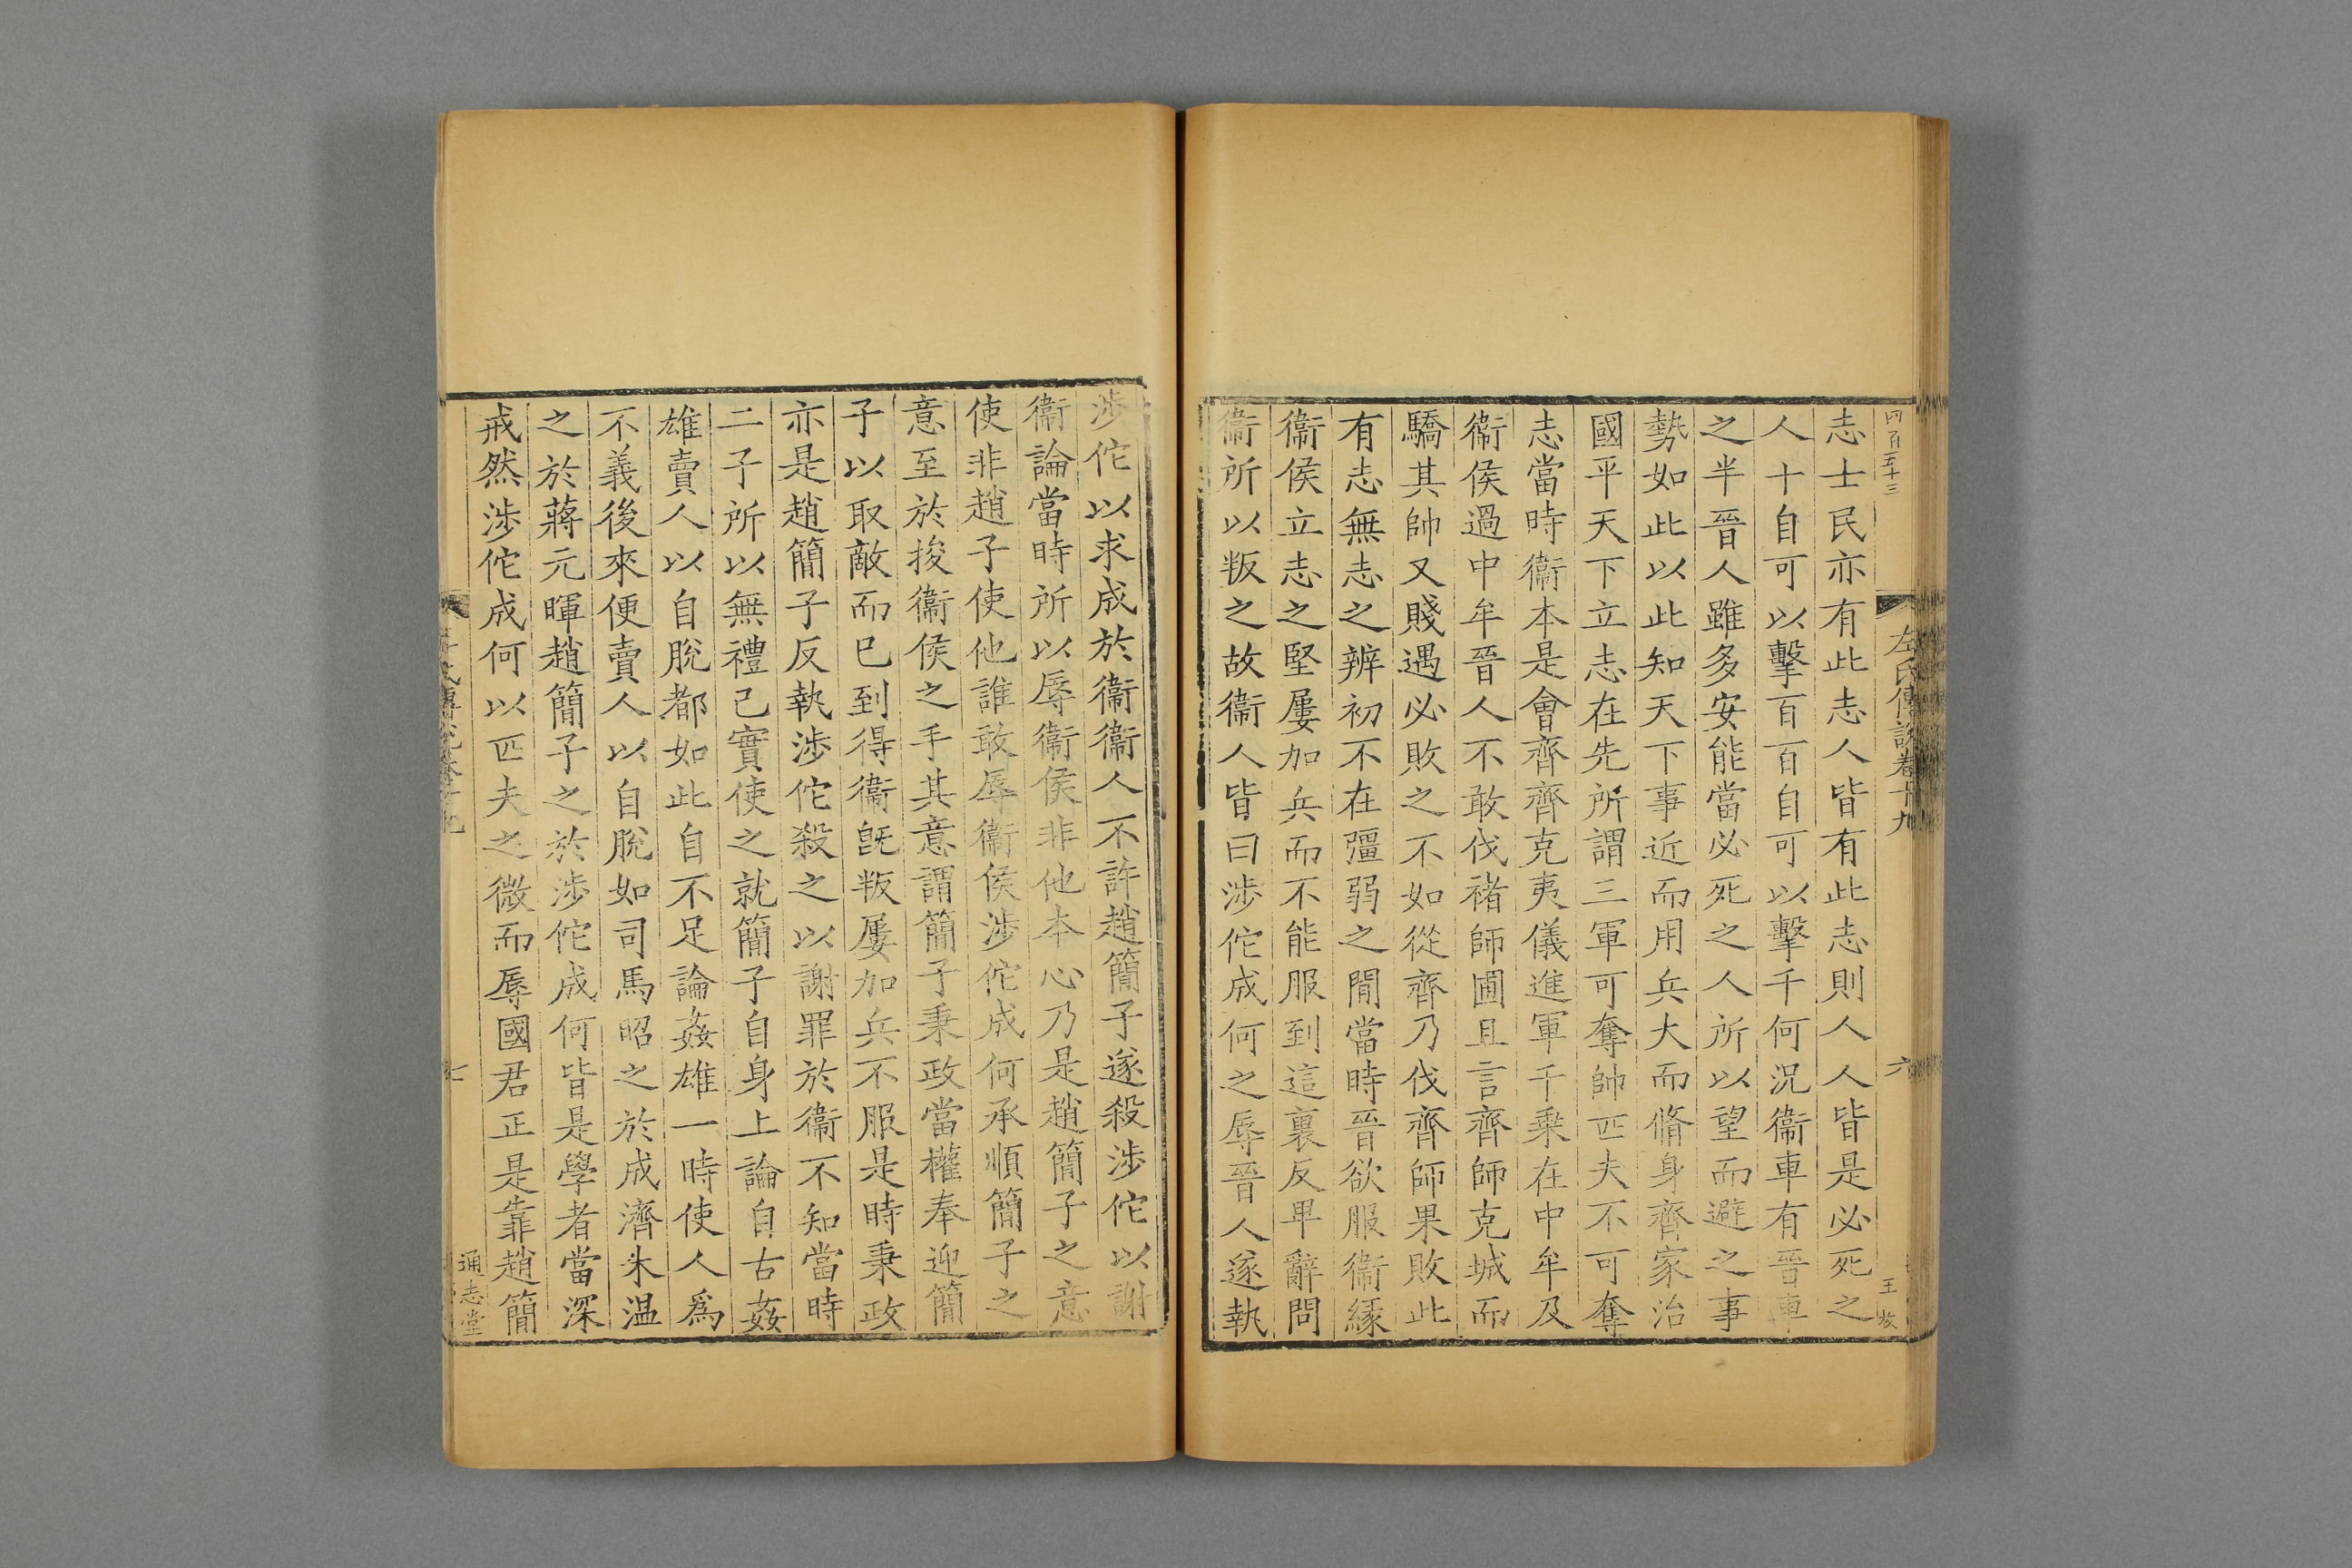 四百五十三
左氏傳說卷十九
六
志士民亦有此志人皆有此志則人人皆是必死之
人十自可以擊百百自可以擊千何況衞車有晉車
之半晉人雖多安能當必死之人所以望而避之事
勢如此以此知天下事近而用兵大而脩身齊家治
國平天下立志在先所謂三軍可奪帥匹夫不可奪
志當時衞本是會齊齊克夷儀進軍千乗在中牟及
衞侯過中牟晉人不敢伐褚師圃且言齊師克城而
驕其帥又賤遇必敗之不如從齊乃伐齊師果敗此
有志無志之辨初不在彊弱之閒當時晉欲服衞緣
衞侯立志之堅屢加兵而不能服到這裏反卑辭問
衞所以叛之故衞人皆曰涉佗成何之辱晉人遂執
涉佗以求成於衞衞人不許趙簡子遂殺涉佗以謝
衞論當時所以辱衞侯非他本心乃是趙簡子之意
使非趙子使他誰敢辱衞侯涉佗成何承順簡子之
意至於捘衞侯之手其意謂簡子秉政當權奉迎簡
子以取敵而已到得衞旣叛屢加兵不服是時秉政
亦是趙簡子反執涉佗殺之以謝罪於衞不知當時
二子所以無禮己實使之就簡子自身上論自古姦
雄賣人以自脫都如此自不足論姦雄一時使人爲
不義後來便賣人以自脫如司馬昭之於成濟朱温
之於蔣元暉趙簡子之於涉佗成何皆是學者當深
戒然涉佗成何以匹夫之微而辱國君正是靠趙簡
通志堂